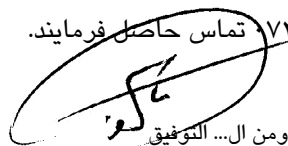 ۷۲ تماس حاصل فرمایند.
ومن ال... التوفیق